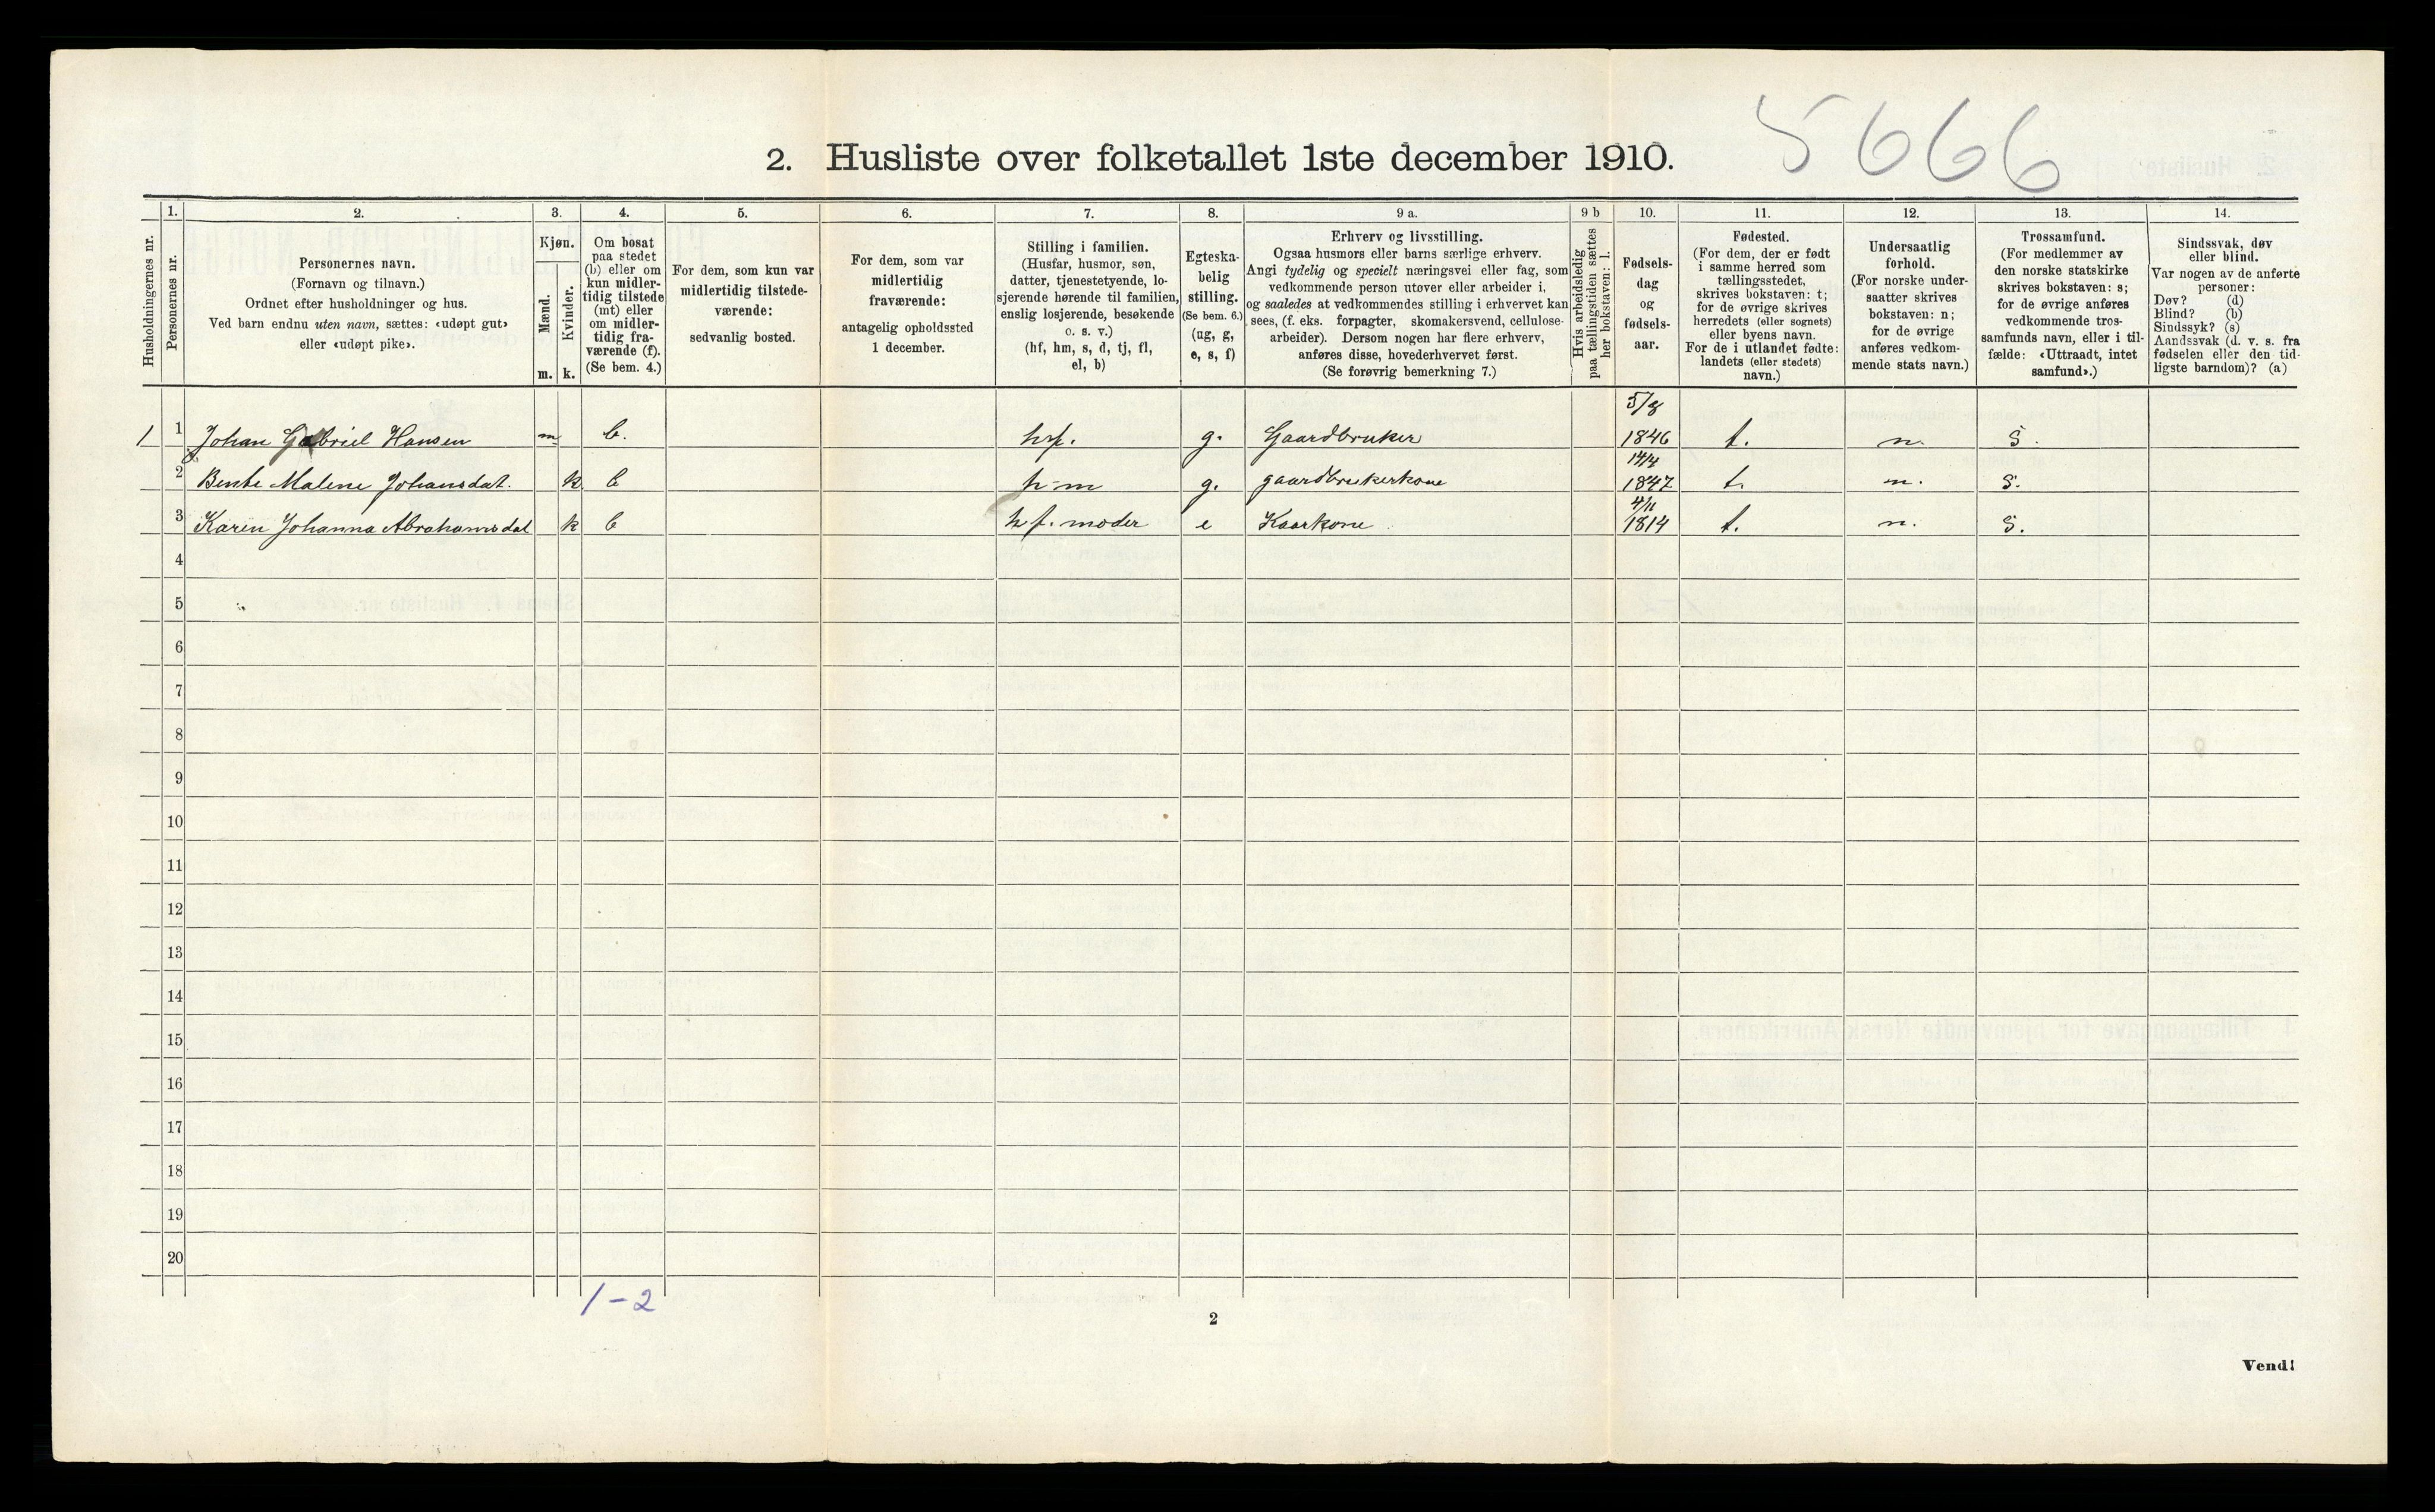 5666
2. Husliste over folketallet 1ste december 1910.
Husholdningernes nr.
1.
Personernes nr.
2.
Personernes navn.
(Fornavn og tilnavn.)
Ordnet efter husholdninger og hus.
Ved barn endnu uten navn, sættes: «udøpt gut»
eller «udøpt pike».
3.
Kjøn.
Mænd.
Kvinder.
m. k.
4.
Om bosat
paa stedet
(b) eller om
kun midler-
tidig tilstede
(mt) eller
om midler-
tidig fra-
værende (f).
(Se bem. 4.)
5.
For dem, som kun var
midlertidig tilstede-
værende:
sedvanlig bosted.
6.
For dem, som var
midlertidig
fraværende:
antagelig opholdssted
1 december.
7.
Stilling i familien.
(Husfar, husmor, søn,
datter, tjenestetyende, lo-
sjerende hørende til familien,
enslig losjerende, besøkende
o. s. v.)
(hf, hm, s, d, tj, fl,
el, b)
8.
Egteska-
belig
stilling.
(Se bem. 6.)
(ug, g,
e, s, f)
9 a.
Erhverv og livsstilling.
Ogsaa husmors eller barns særlige erhverv.
Angi tydelig og specielt næringsvei eller fag, som
vedkommende person utøver eller arbeider i,
og saaledes at vedkommendes stilling i erhvervet kan
sees, (f. eks. forpagter, skomakersvend, cellulose-
arbeider). Dersom nogen har flere erhverv,
anføres disse, hovederhvervet først.
(Se forøvrig bemerkning 7.)
9 b
Hvis arbeidsledig
paa tællingstiden sættes
her bokstaven: l.
10.
Fødsels-
dag
og
fødsels-
aar.
11.
Fødested.
(For dem, der er født
i samme herred som
tællingsstedet,
skrives bokstaven: t;
for de øvrige skrives
herredets (eller sognets)
eller byens navn.
For de i utlandet fødte:
landets (eller stedets)
navn.)
12.
Undersaatlig
forhold.
(For norske under-
saatter skrives
bokstaven: n;
for de øvrige
anføres vedkom-
mende stats navn.)
13.
Trossamfund.
(For medlemmer av
den norske statskirke
skrives bokstaven: s;
for de øvrige anføres
vedkommende tros-
samfunds navn, eller i til-
fælde: «Uttraadt, intet
samfund».)
14.
Sindssvak, døv
eller blind.
Var nogen av de anførte
personer:
Døv? (d)
Blind? (b)
Sindssyk? (s)
Aandssvak (d. v. s. fra
fødselen eller den tid-
ligste barndom)? (a)
1 1 Johan Gabriel Hansen m b. hf. g. Gaardbruker 5/8 1846 t. n. S.
2 Bente Malene Johansdat. k b h-m g. gaardbrukerkone 14/4 1847 t. n. S.
3 Karen Johanna Abrahamsdat k b hf. moder e Kaarkone 4/11 1814 t. n. S.
4
5
6
7
8
9
10
11
12
13
14
15
16
17
18
19
20
1-2
2
Vend!